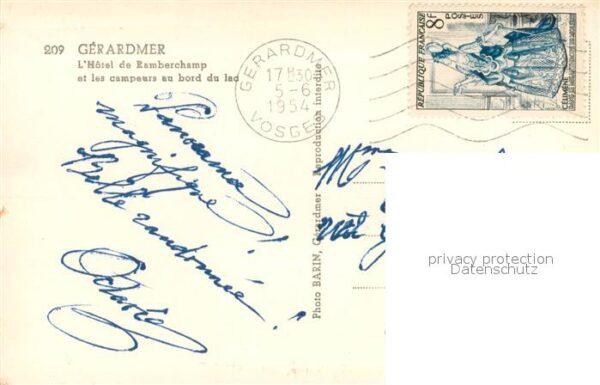 209 GÉRARDMER
L'Hôtel de Ramberchamp
et les campeurs au bord du lac
Panorama
magnifique!
Belle randonnée!
GERARDMER
17H30
5-6
1954
VOSGES
8F
POSTES
REPUBLIQUE FRANÇAISE
CELIMENE
Photo BARIN, Gérardmer Reproduction interdite
Mme
privacy protection
Datenschutz